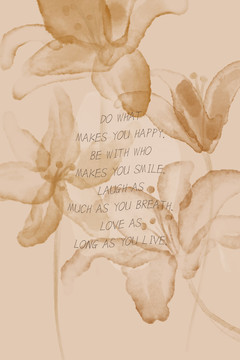 DO WHAT
MAKES YOU HAPPY,
BE WITH WHO
MAKES YOU SMILE,
LAUGH AS
MUCH AS YOU BREATH,
LOVE AS
LONG AS YOU LIVE.